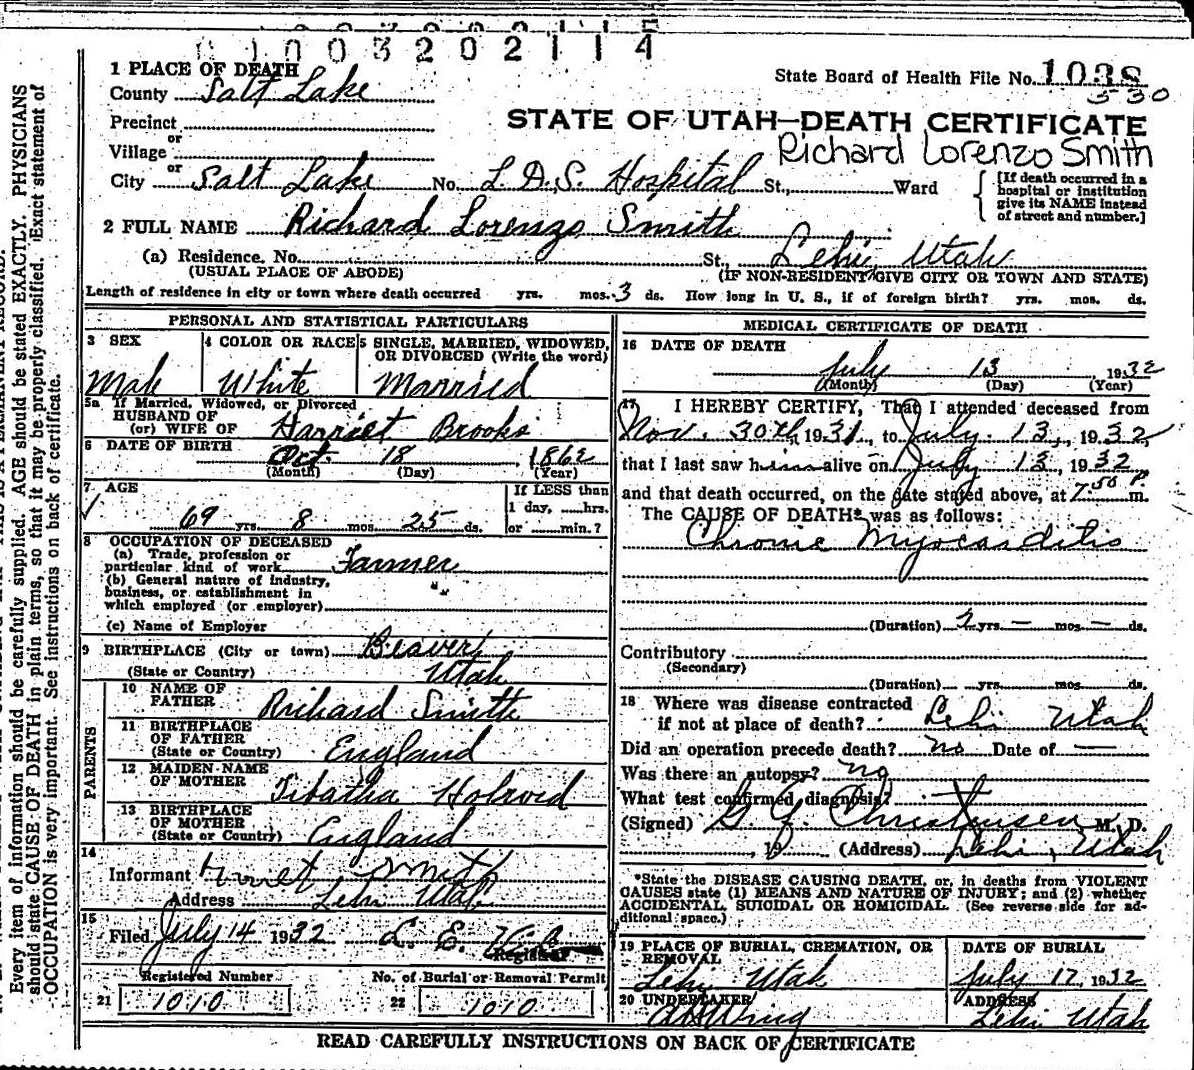 01003202114
1 PLACE OF DEATH
County Salt Lake
State Board of Health File No. 1038
530
Precinct
or
Village
or
City Salt Lake No. L.D.S. Hospital St., Ward
STATE OF UTAH—DEATH CERTIFICATE
Richard Lorenzo Smith
[If death occurred in a
hospital or institution
give its NAME instead
of street and number.]
2 FULL NAME Richard Lorenzo Smith
(a) Residence. No. St., Lehi, Utah
(USUAL PLACE OF ABODE) (IF NON-RESIDENT GIVE CITY OR TOWN AND STATE)
Length of residence in city or town where death occurred yrs. mos. 3 ds. How long in U. S., if of foreign birth? yrs. mos. ds.
PERSONAL AND STATISTICAL PARTICULARS
3 SEX
Male
4 COLOR OR RACE
White
5 SINGLE, MARRIED, WIDOWED,
OR DIVORCED (Write the word)
Married
5a If Married, Widowed, or Divorced
HUSBAND OF
(or) WIFE OF Harriet Brooks
6 DATE OF BIRTH Oct. 18, 1862
(Month) (Day) (Year)
7 AGE
69 yrs. 8 mos. 25 ds.
If LESS than
1 day, hrs.
or min.?
8 OCCUPATION OF DECEASED
(a) Trade, profession or
particular kind of work Farmer
(b) General nature of industry,
business, or establishment in
which employed (or employer) "
(c) Name of Employer
9 BIRTHPLACE (City or town) Beaver,
(State or Country) Utah
PARENTS
10 NAME OF
FATHER Richard Smith
11 BIRTHPLACE
OF FATHER
(State or Country) England
12 MAIDEN NAME
OF MOTHER Tibatha Holroid
13 BIRTHPLACE
OF MOTHER
(State or Country) England
14
Informant Smith
Address Lehi Utah
15
Filed July 14 1932 L. E.
Registrar
Registered Number
21 1010
No. of Burial or Removal Permit
22 1010
MEDICAL CERTIFICATE OF DEATH
16 DATE OF DEATH
July 13, 1932
(Month) (Day) (Year)
17 I HEREBY CERTIFY, That I attended deceased from
Nov. 30th, 1931, to July 13, 1932,
that I last saw him alive on July 13, 1932,
and that death occurred, on the date stated above, at 7:50 P. m.
The CAUSE OF DEATH* was as follows:
Chronic Myocarditis
(Duration) 2 yrs. — mos. — ds.
Contributory
(Secondary)
(Duration) yrs. mos. ds.
18 Where was disease contracted
if not at place of death? Lehi Utah
Did an operation precede death? no Date of —
Was there an autopsy? no
What test confirmed diagnosis?
(Signed) Christensen M. D.
, 19 (Address) Lehi, Utah
*State the DISEASE CAUSING DEATH, or, in deaths from VIOLENT
CAUSES state (1) MEANS AND NATURE OF INJURY; and (2) whether
ACCIDENTAL, SUICIDAL OR HOMICIDAL. (See reverse side for ad-
ditional space.)
19 PLACE OF BURIAL, CREMATION, OR
REMOVAL
Lehi Utah
DATE OF BURIAL
July 17, 1932
20 UNDERTAKER
Wing
ADDRESS
Lehi Utah
READ CAREFULLY INSTRUCTIONS ON BACK OF CERTIFICATE
Every item of information should be carefully supplied. AGE should be stated EXACTLY. PHYSICIANS
should state CAUSE OF DEATH in plain terms, so that it may be properly classified. Exact statement of
OCCUPATION is very important. See instructions on back of certificate.